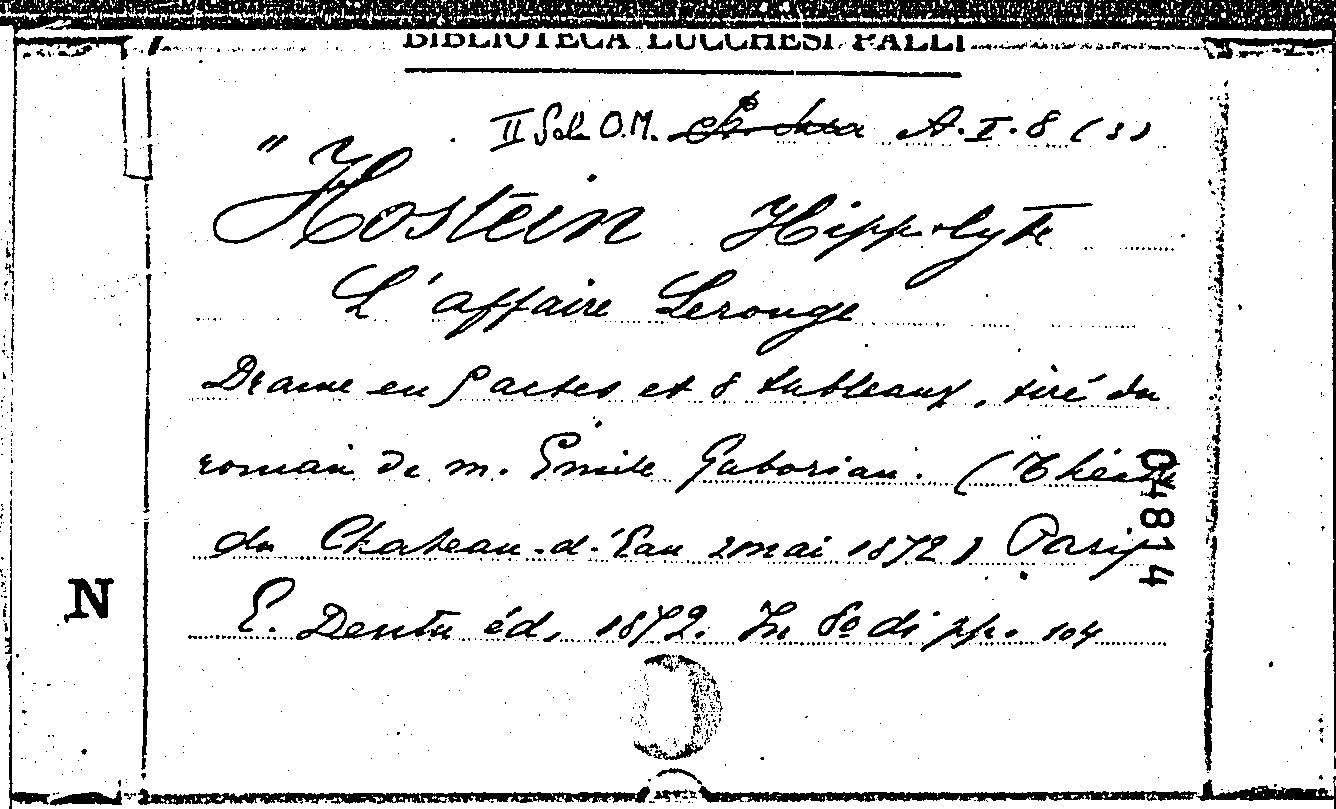 BIBLIOTECA LUCCHESI PALLI
II Sala O.M. A.I.8 (3)
" Hostein Hippolyte
L'affaire Lerouge
Drame en 5 actes et 8 tableaux, tiré du
roman de m. Emile Gaboriau. (Théatre
du Chateau-d'Eau 2 mai 1872) Paris
E. Dentu éd, 1872. In 8º di pp. 104
04814
N